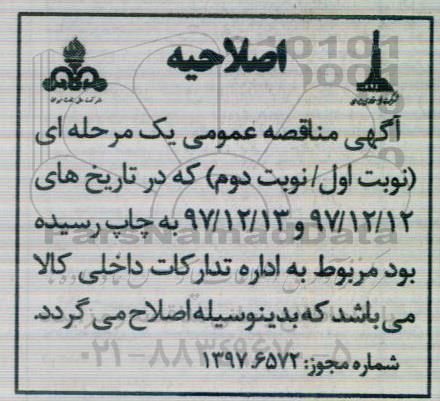 اصلاحیه
آگهی مناقصه عمومی یک مرحله ای
(نوبت اول/نوبت دوم) که در تاریخ های
۹۷/۱۲/۱۲ و ۹۷/۱۲/۱۳ به چاپ رسیده
بود مربوط به اداره تدارکات داخلی کالا
می باشد که بدینوسیله اصلاح می گردد.
شماره مجوز: ۱۳۹۷.۶۵۷۲
ParsNamadData
۰۲۱-۸۸۳۴۹۶۷۰